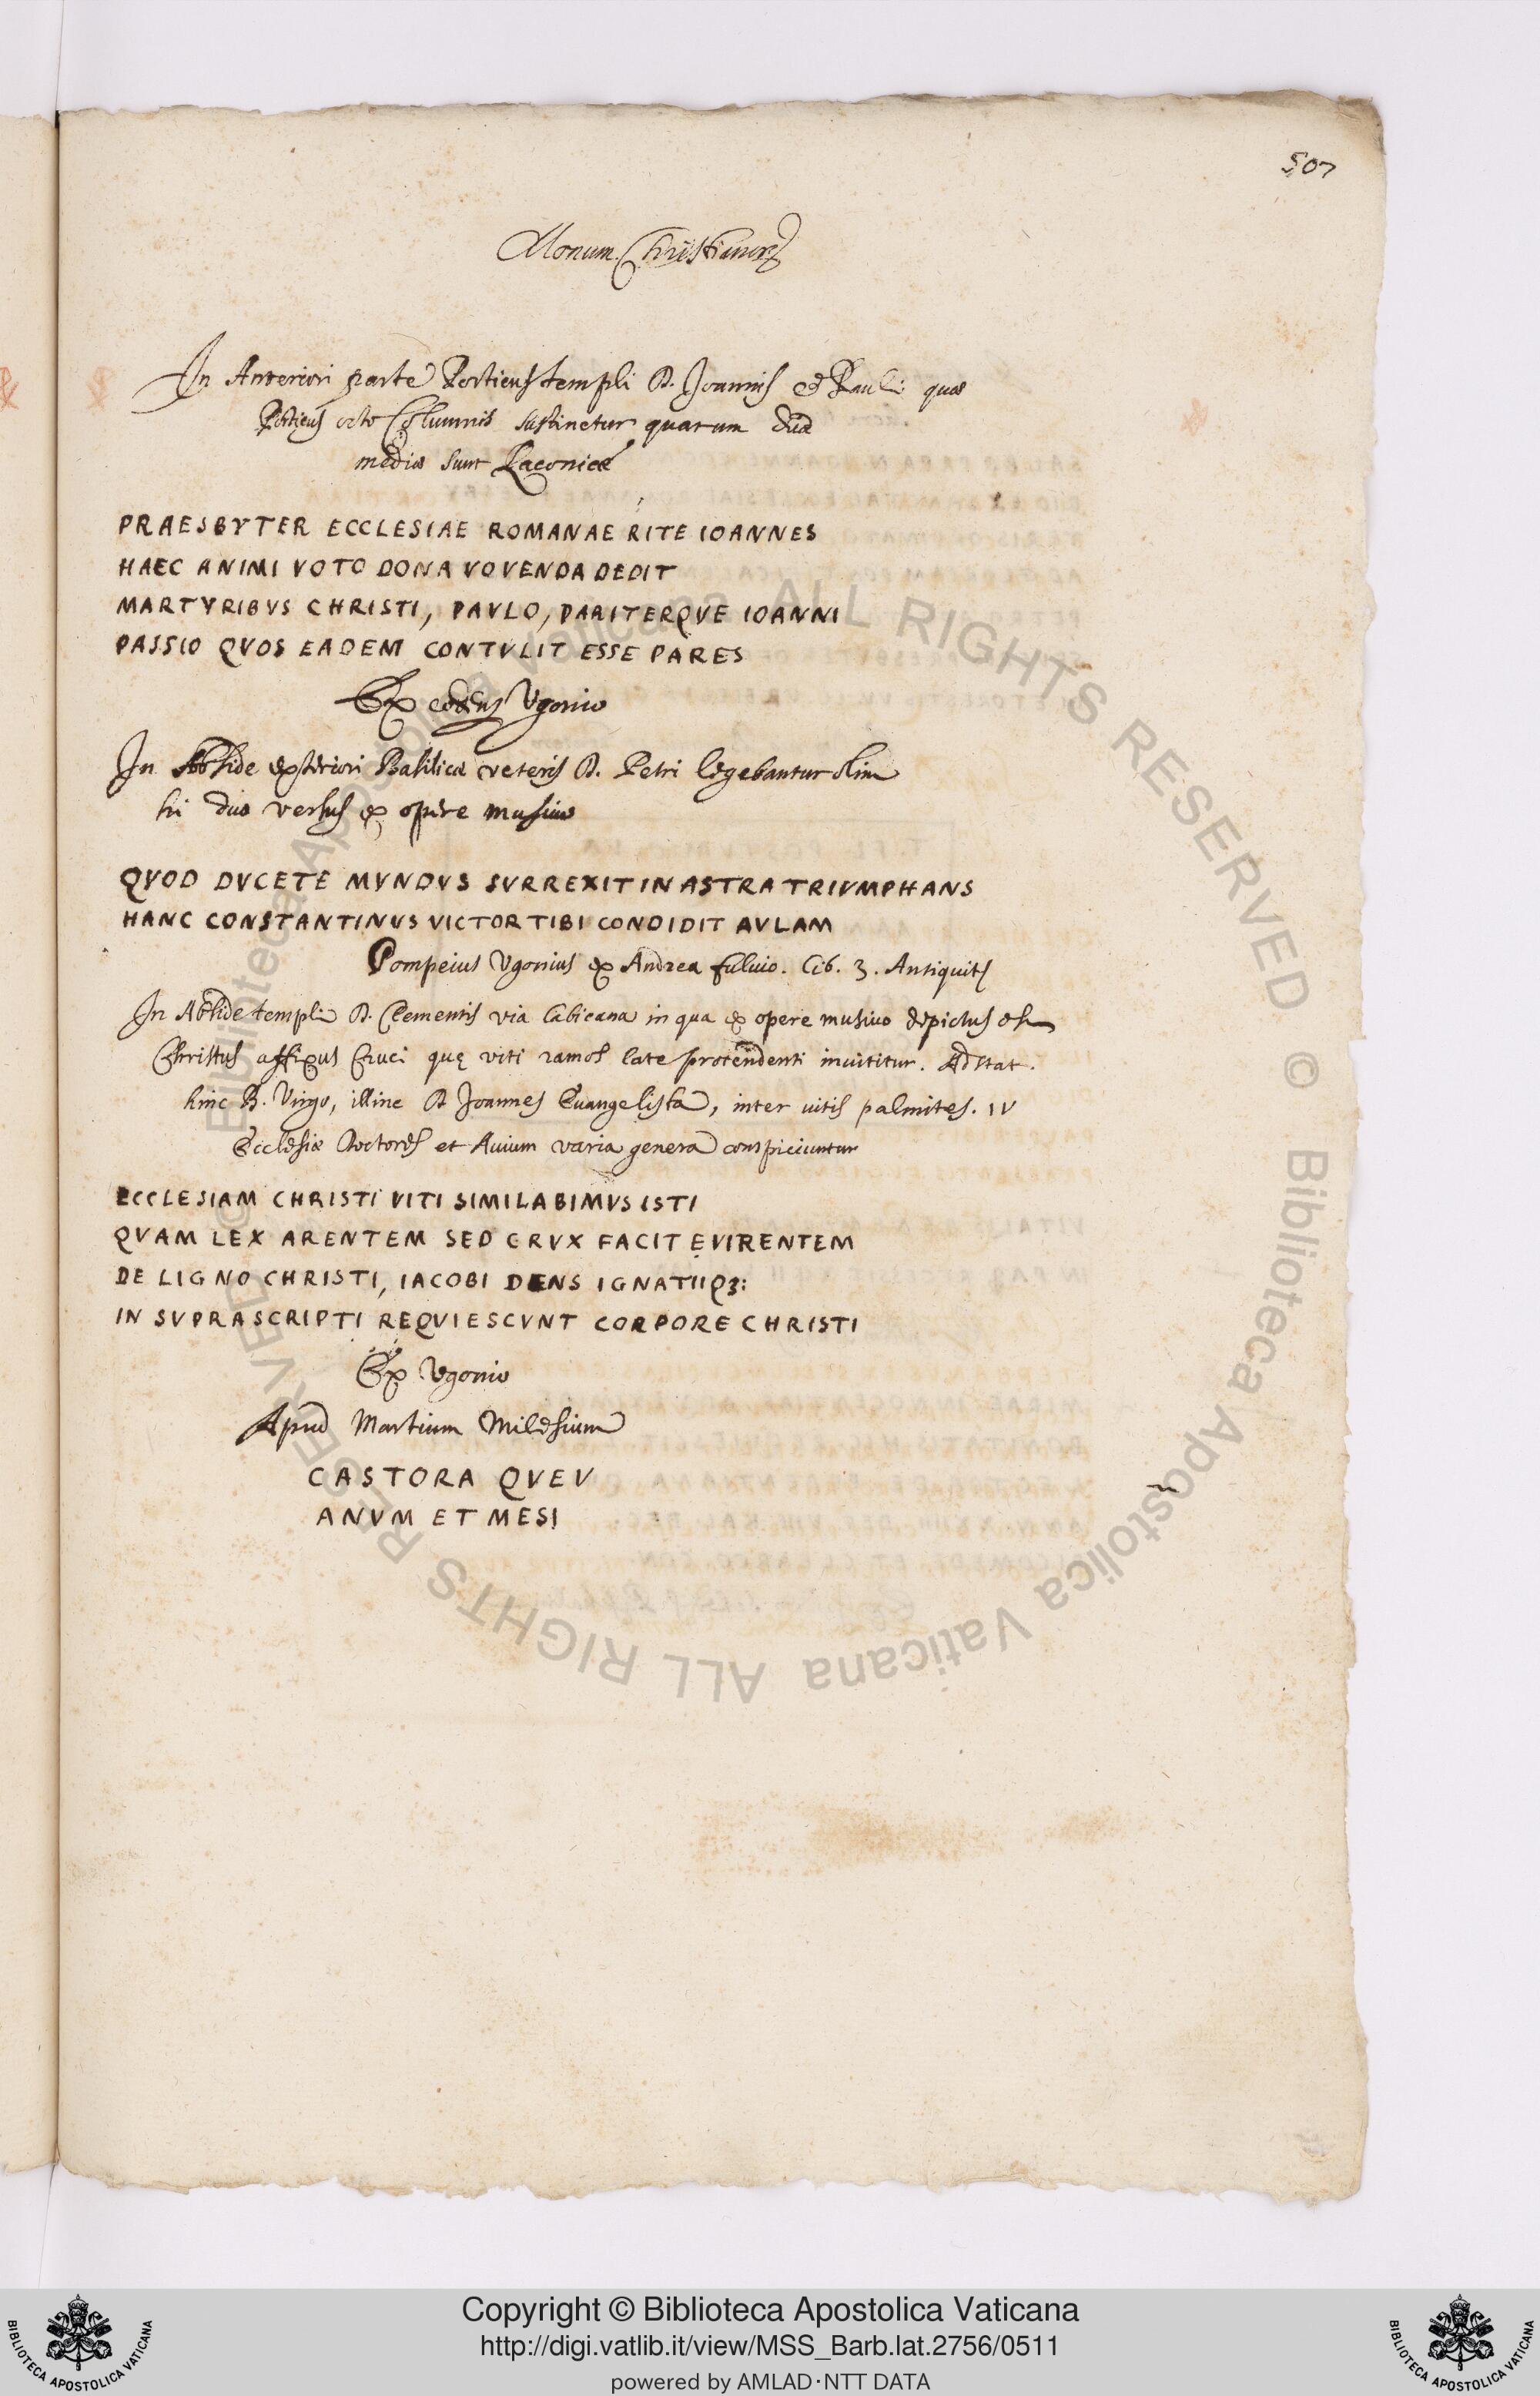 507
Monum. Christianor
In Anteriori parte Porticus templi D. Joannis et Pauli quae
Porticus octo Columnis sustinetur quarum duae
mediae sunt Laconicae
PRAESBYTER ECCLESIAE ROMANAE RITE IOANNES
HAEC ANIMI VOTO DONA VOVENDA DEDIT
MARTYRIBVS CHRISTI, PAVLO, PARITERQVE IOANNI
PASSIO QVOS EADEM CONTVLIT ESSE PARES
Ex eodem Vgonio
In Abside exteriori Basilicae veteris D. Petri legebantur olim
hi duo versus ex opere musivo
QVOD DVCETE MVNDVS SVRREXIT IN ASTRA TRIVMPHANS
HANC CONSTANTINVS VICTOR TIBI CONDIDIT AVLAM
Pompeius Vgonius ex Andrea fuluio. Lib. 3. Antiquit
In Abside templi D. Clementis via Labicana in qua ex opere musiuo depictus est
Christus affixus Cruci quę viti ramos late protendenti inuititur. Adstat.
hinc B. Virgo, illinc D Joannes Euangelista, inter uitis palmites. IV
Ecclesiae Doctores et Auium varia genera conspiciuntur
ECCLESIAM CHRISTI VITI SIMILABIMVS ISTI
QVAM LEX ARENTEM SED CRVX FACIT EVIRENTEM
DE LIGNO CHRISTI, IACOBI DENS IGNATIIQ3:
IN SVPRASCRIPTI REQVIESCVNT CORPORE CHRISTI
Ex Vgonio
Apud Martium Milesium
CASTORA QVEV
ANVM ET MESI
© Biblioteca Apostolica Vaticana ALL RIGHTS RESERVED © Biblioteca Apostolica Vaticana ALL RIGHTS RESERVED
Copyright © Biblioteca Apostolica Vaticana
http://digi.vatlib.it/view/MSS_Barb.lat.2756/0511
powered by AMLAD·NTT DATA
BIBLIOTECA APOSTOLICA VATICANA
BIBLIOTECA APOSTOLICA VATICANA